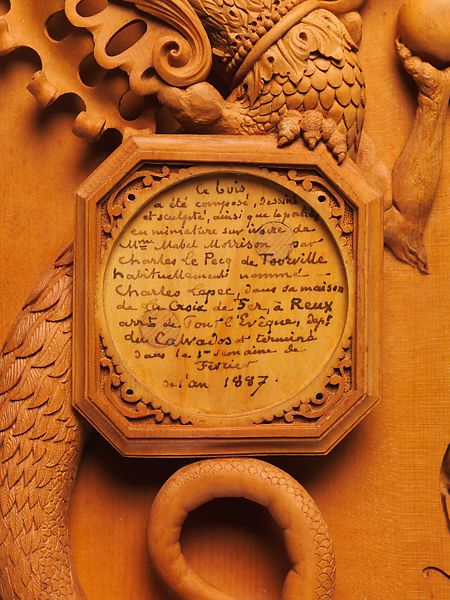 Ce bois,
a été composé, dessiné
et sculpté, ainsi que le portrait
en miniature sur ivoire de
Mme Mabel Morrison par
Charles Le Pecq de Tourville
habituellement nommé
Charles Lepec, dans sa maison
de La Croix de Fer, à Reux
arrt de Pont l'Evêque, dept
du Calvados et terminé
dans la 1re semaine de
Février
de l'an 1887.